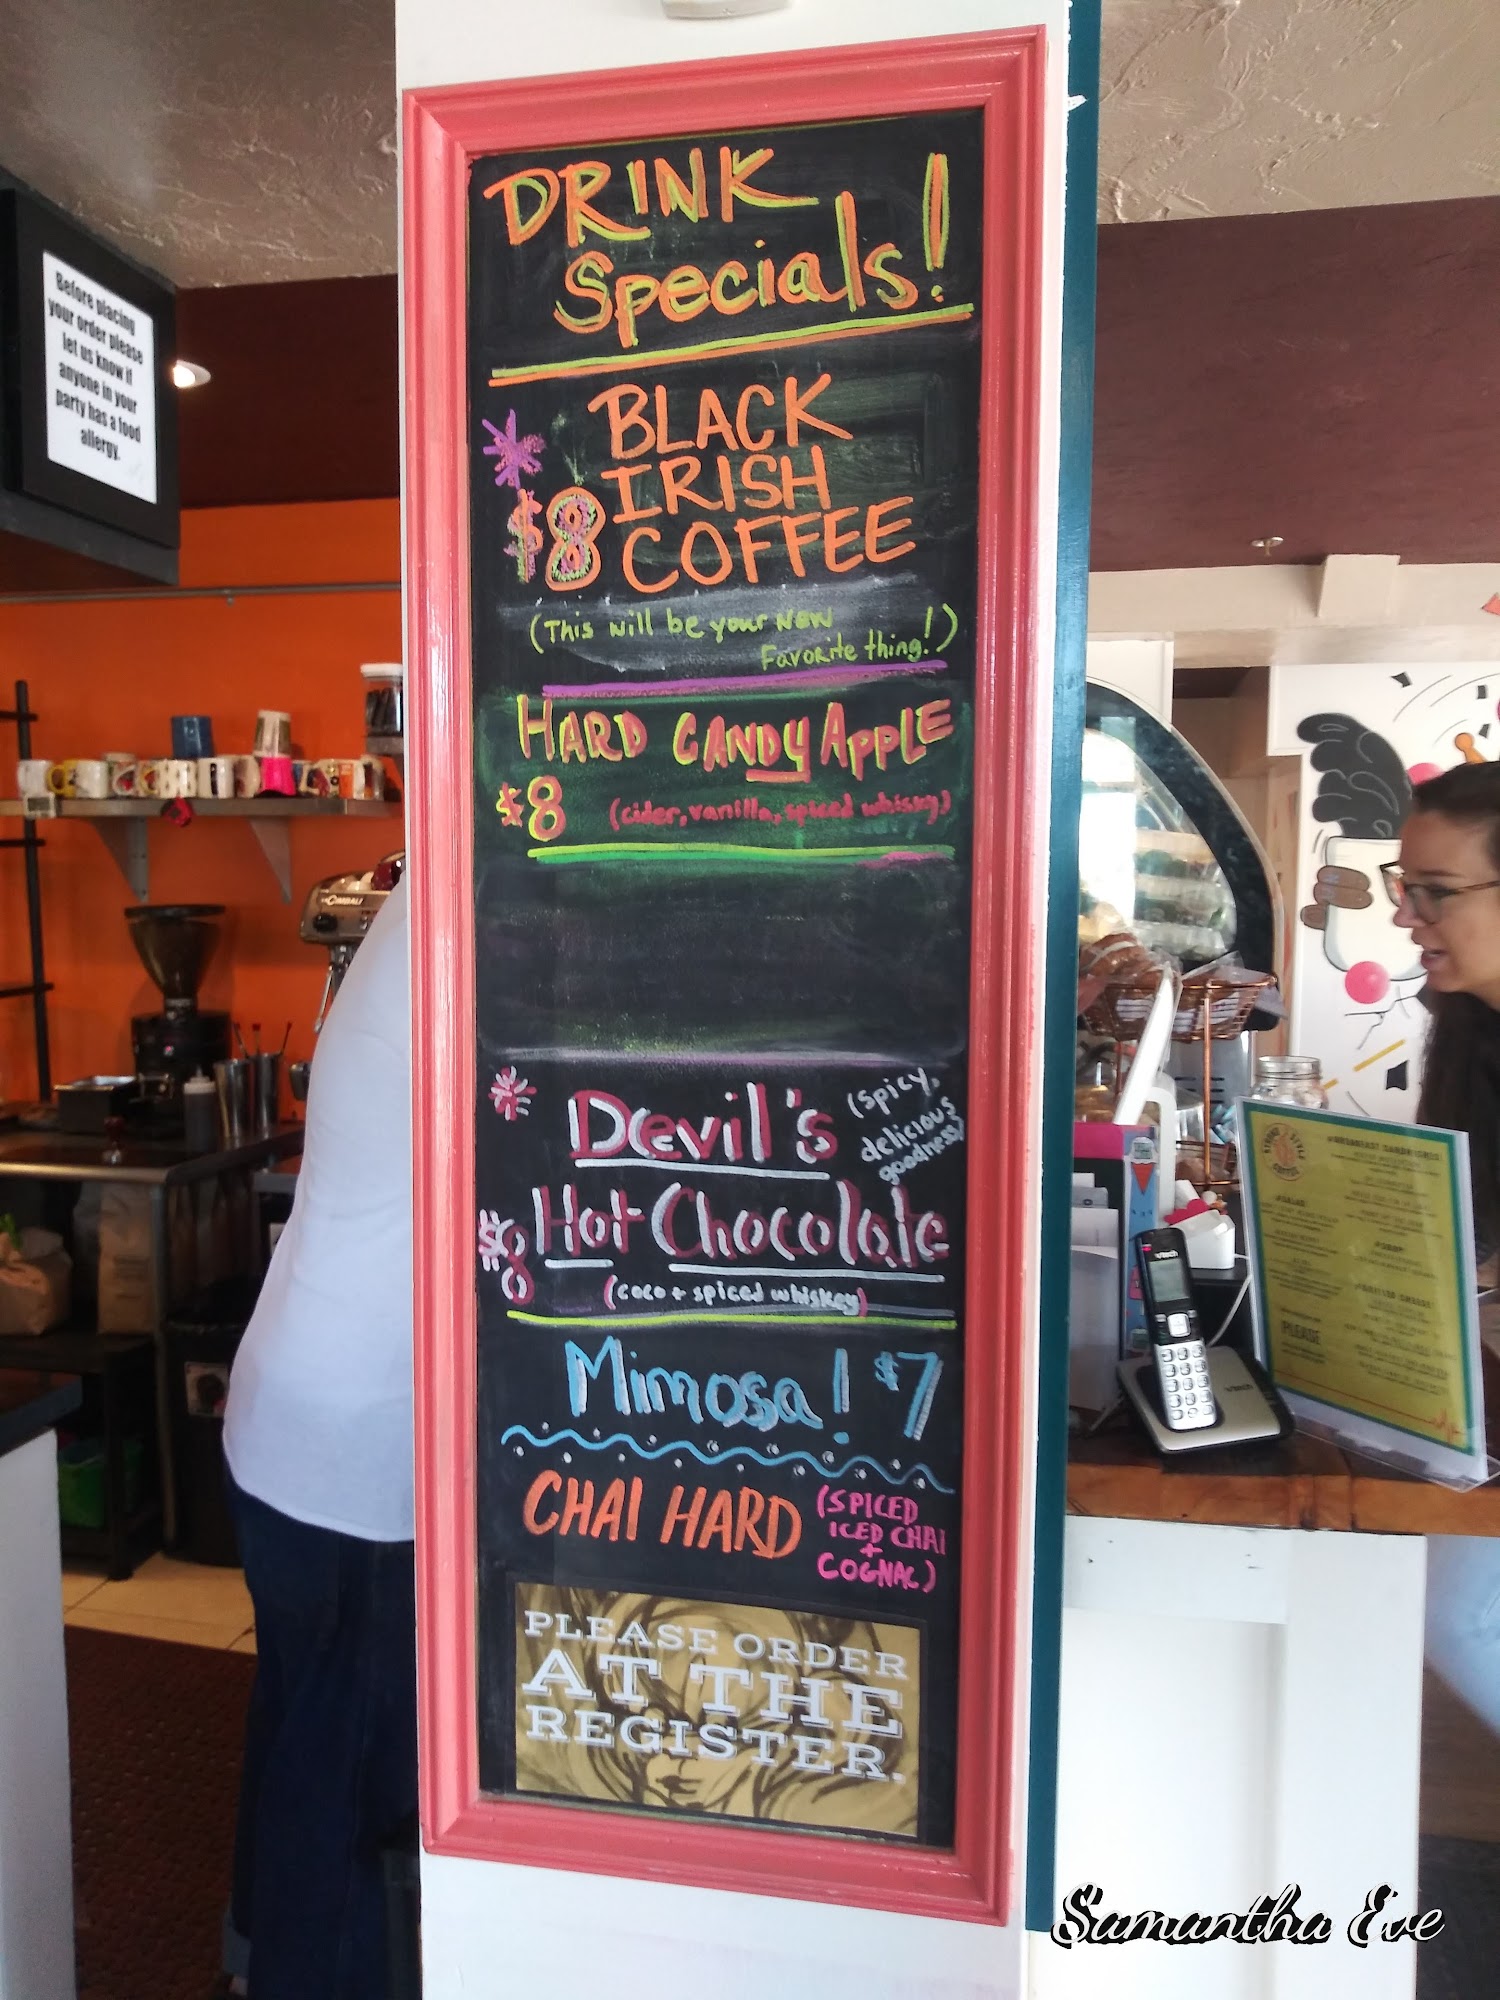 Before placing
your order please
let us know if
anyone in your
party has a food
allergy.
DRINK
Specials!
BLACK
IRISH
$8 COFFEE
(This will be your New
Favorite thing!)
HARD CANDY APPLE
$8 (cider, vanilla, spiced whisky)
Devil's
(spicy,
delicious
goodness)
$8 Hot Chocolate
(coco + spiced whiskey)
Mimosa! $7
CHAI HARD
(SPICED
ICED CHAI
+
COGNAC)
PLEASE ORDER
AT THE
REGISTER.
CIMBALI
vtech
vtech
PLEASE
Samantha Eve